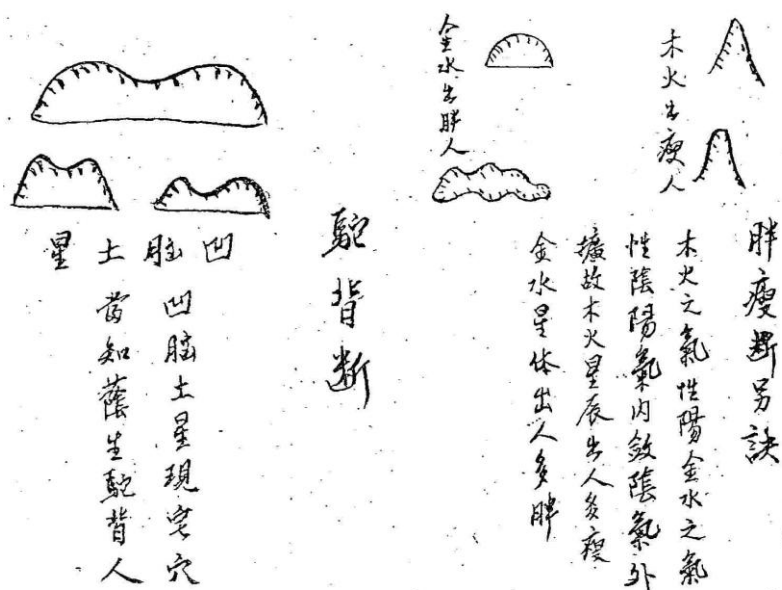 木火出瘦人
胖瘦断另訣
木火之氣性陽金水之氣
性陰陽氣内斂陰氣外
擴故木火星辰出人多瘦
金水星体出人多胖
金水出胖人
駝背断
凹脑土星
凹脑土星現宅穴
當知蔭生駝背人